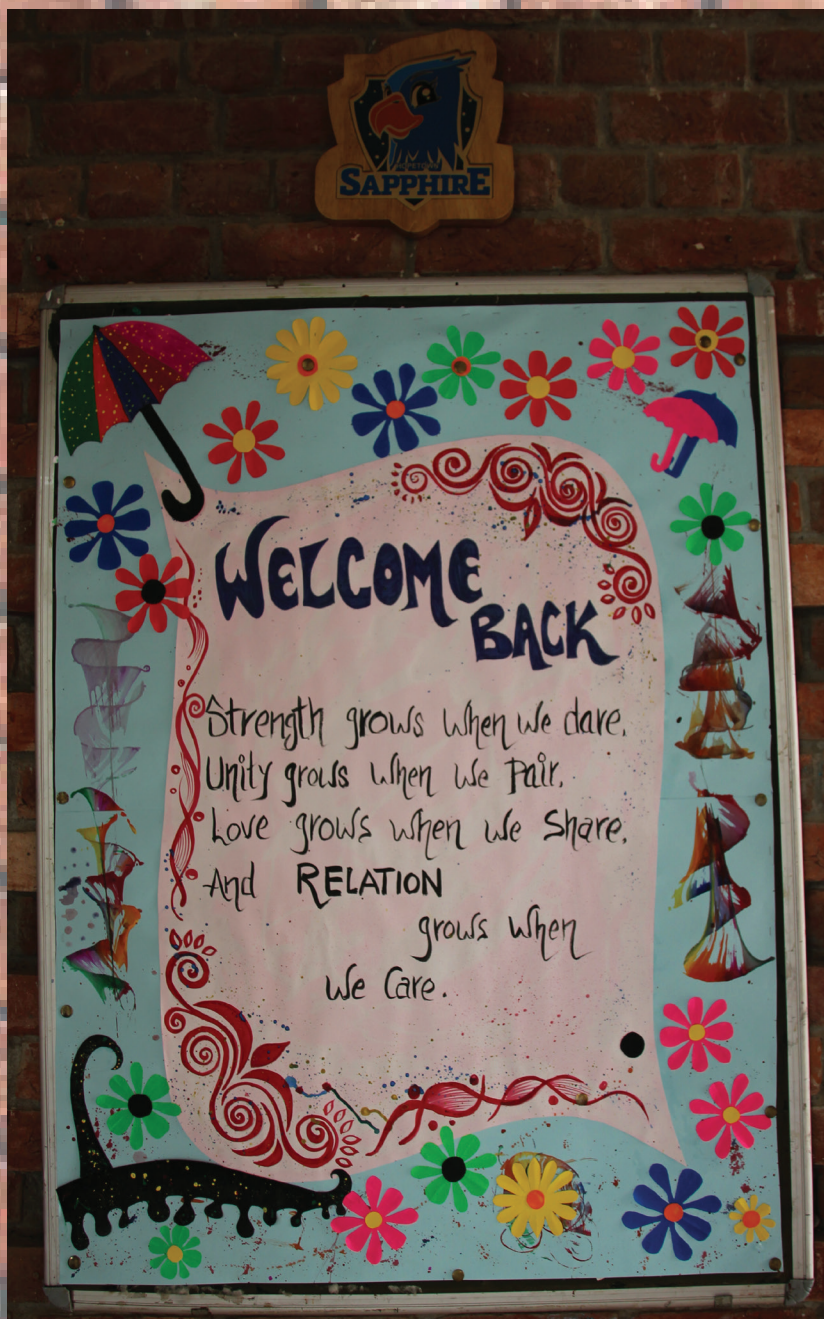 SAPPHIRE
WELCOME
BACK
Strength grows when we dare.
Unity grows when we Pair.
Love grows when we Share.
And RELATION
grows when
we Care.